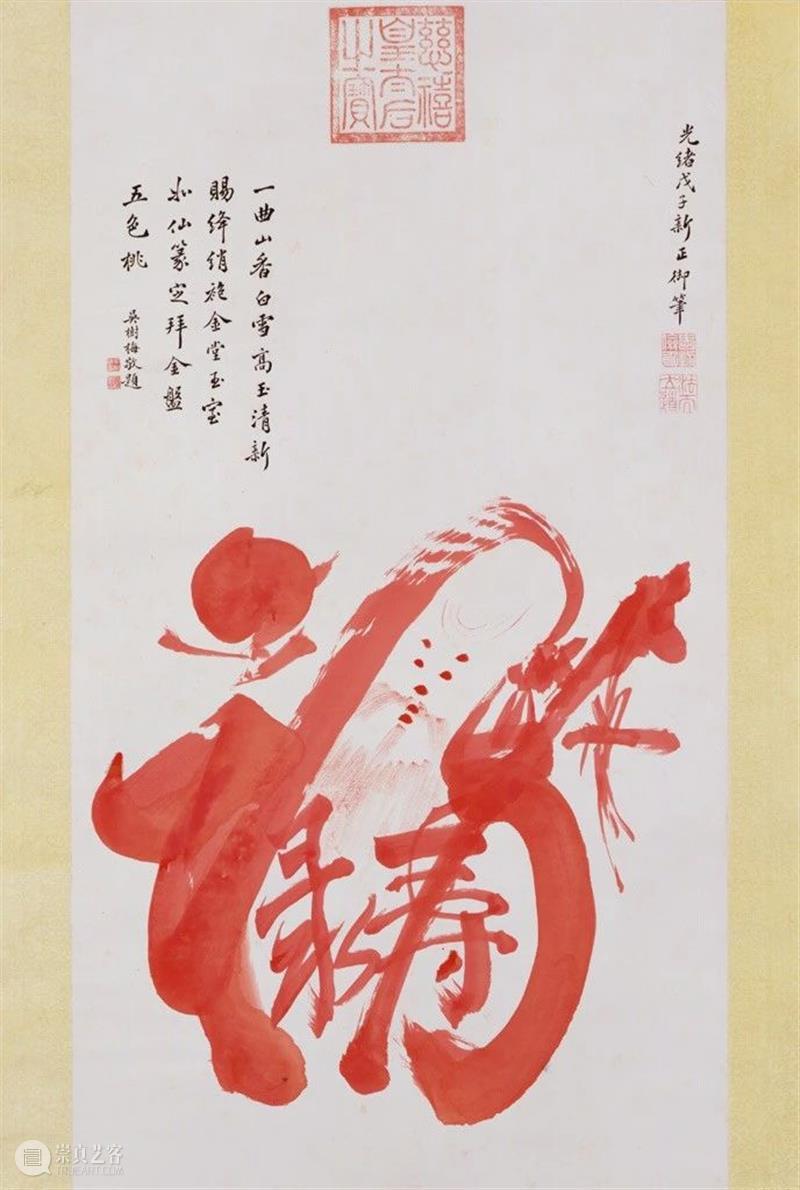 慈禧
皇太后
之寶
光緒戊子新正御筆
法天
立道
一曲山香白雪高玉清新
賜絳綃袍金堂玉室
仙篆定拜金盤
五色桃
吳樹梅敬題
祿壽
崇真艺客
TRUEART.COM